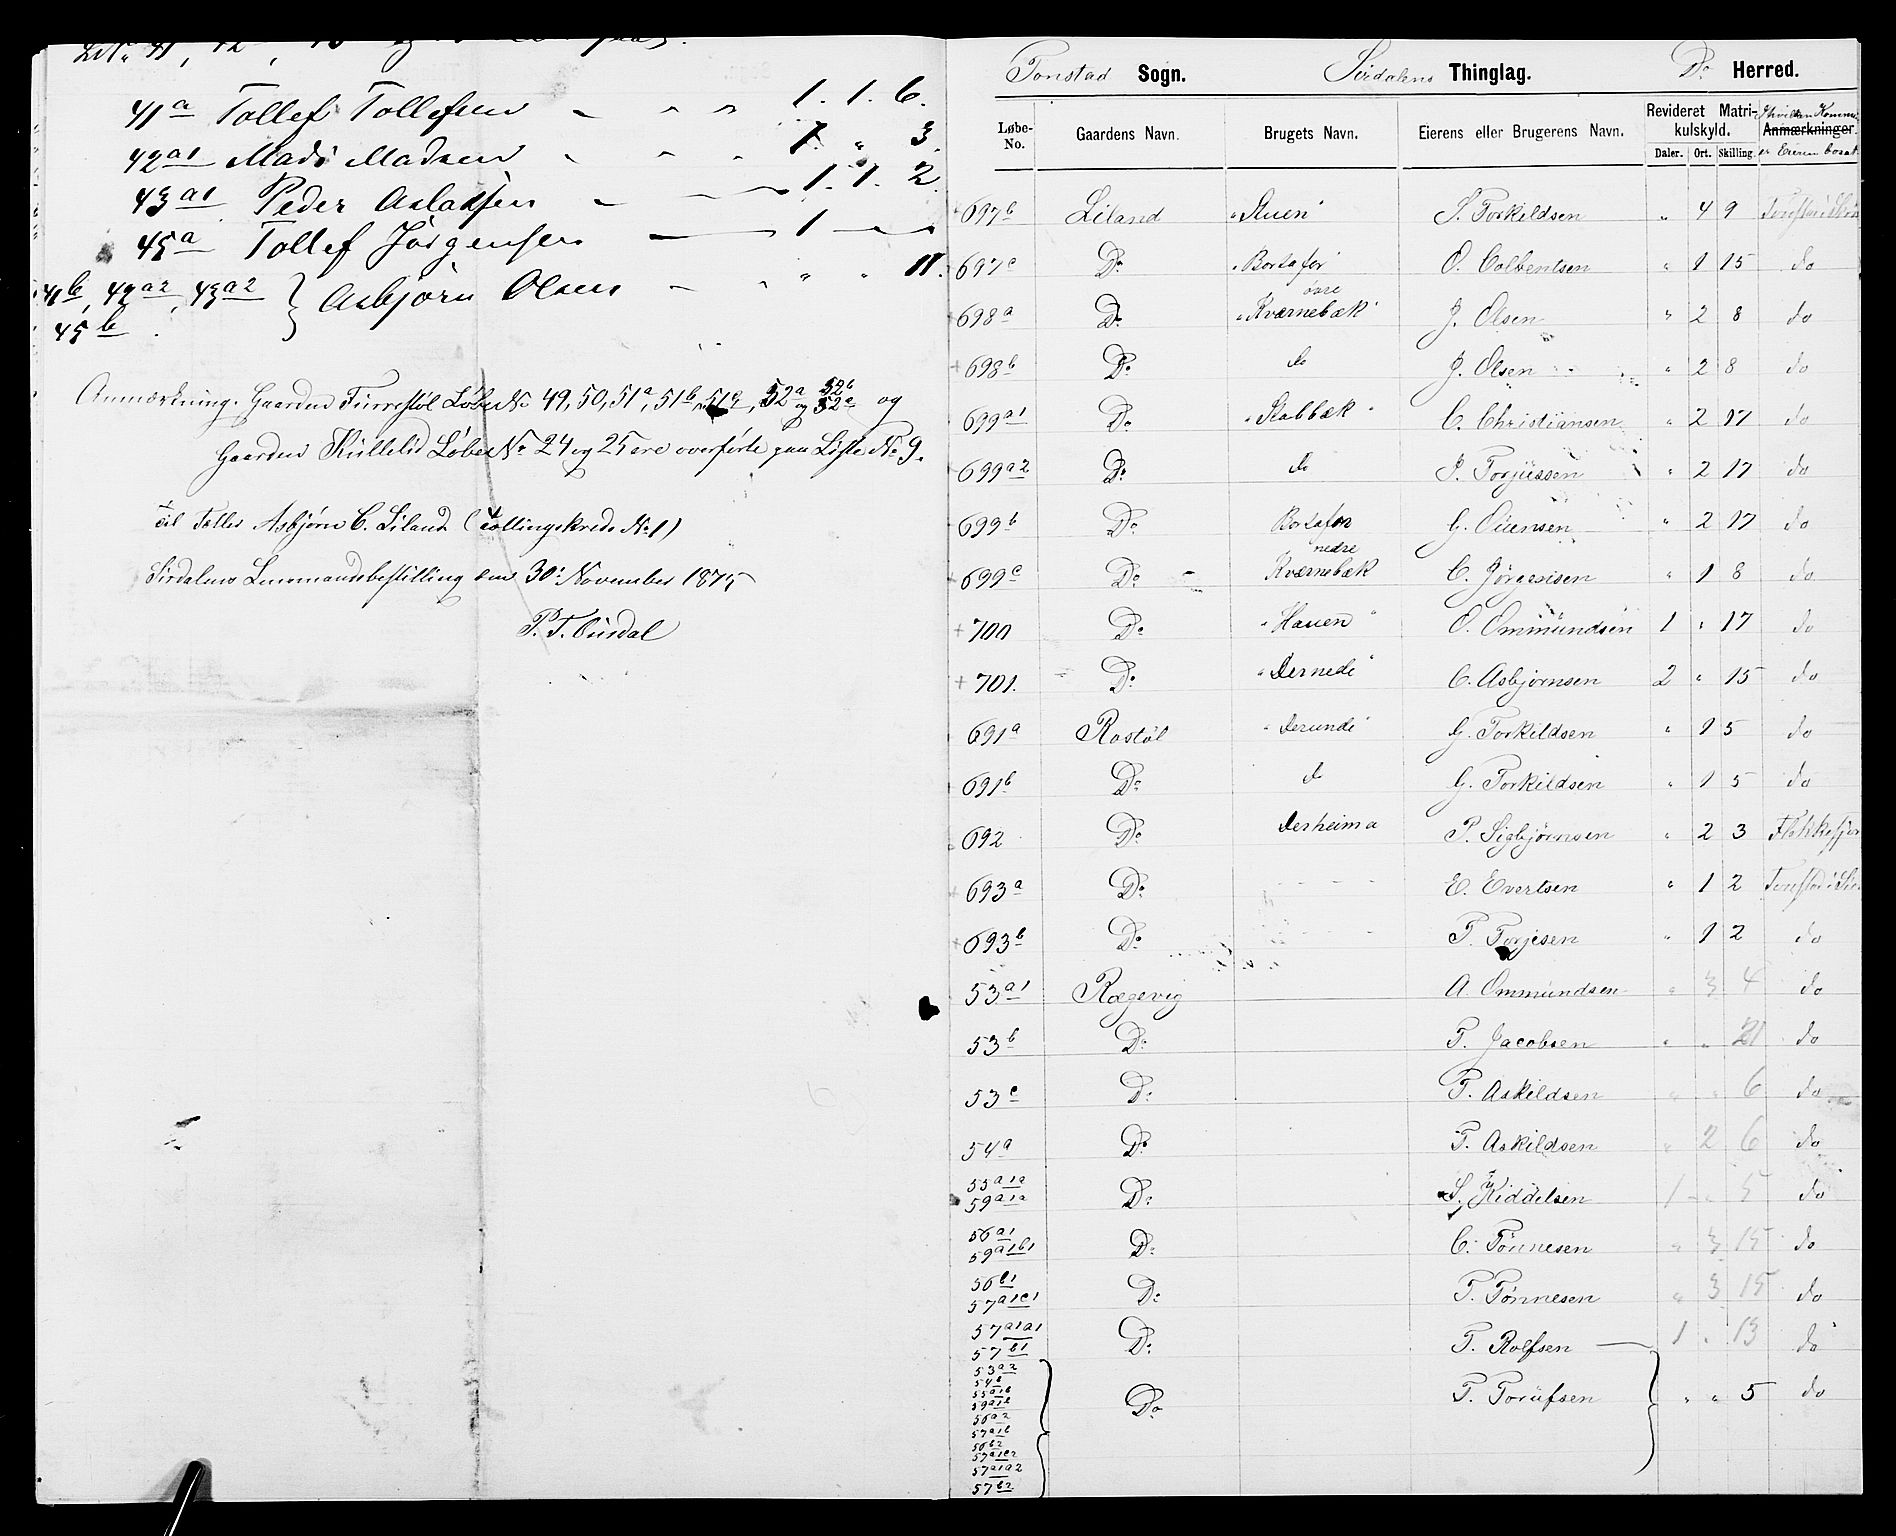 41a Tollef Tollefsen 1. 1. 6.
42a1 Mads Madsen 1. „ 3.
43a1 Peder Aslaksen 1. 1. 2.
45a Tollef Jörgensen — 1 —
41b, 42a2, 43a2 } Asbjörn Olsen „ „ 11.
45b
Anmærkning. Gaarden Furrestöl Löbe No 49, 50, 51a, 51b, 51c, 52a og 52b og
Gaarden Küllelid Löbe No 24 og 25 ere overförte paa Liste No 9.
til Tæller Asbjörn C. Liland (Tællingskreds No 1)
Sirdalens Lensmandsbestilling den 30' November 1875
P. T. Ousdal
Tonstad Sogn. Sirdalens Thinglag. Do Herred.
Løbe-No. Gaardens Navn. Brugets Navn. Eierens eller Brugerens Navn. Revideret Matrikulskyld. Daler. Ort. Skilling. Anmærkninger. Hvilken Komm. er Eieren bosat.
697b Liland „Stuen" S. Torkildsen „ 4 9
697c Do „Bortafor" O. Colbentsen „ 1 15 do
698a Do „Kværnebæk" övre J. Olsen „ 2 8 do
698b Do do J. Olsen „ 2 8 do
699a1 Do „Stabbæk" C. Christiansen „ 2 17 do
699a2 Do do P. Torjussen „ 2 17 do
699b Do Bortafor G. Ouensen „ 2 17 do
699c Do Kværnebæk nedre C. Jörgensen „ 1 8 do
700 Do „Hauen" O. Ommundsen 1 „ 17 do
701. Do „Dernede" C. Asbjörnsen 2 „ 15 do
691a Rostöl „Derunde" G. Torkildsen „ 1 5 do
691b Do do G. Torkildsen „ 1 5 do
692 Do Derheima P. Sigbjörnsen „ 2 3 Flekkefjor
693a Do E. Evertsen „ 1 2 Tonstad i Sir.
693b Do T. Torjesen „ 1 2 do
53a1 Rægevig A. Ommundsen „ 3 4 do
53b Do T. Jacobsen „ „ 21 do
53c Do T. Askildsen „ „ 6 do
54a Do T. Askildsen „ 2 6 do
55a1a
59a1a Do S. Kiddelsen 1 „ 5 do
56a1
59a1b1 Do C. Tönnesen „ 3 15 do
56b1
57a1c1 Do T. Tönnesen „ 3 15 do
57a1a1
57b1 Do T. Rolfsen — 1 „ 13 do
53a2
54b
55a1b
59a1b Do T. Torüfsen „ „ 5 do
56a2
57a1b
56b2
57a1c2
57a1a2
57b2